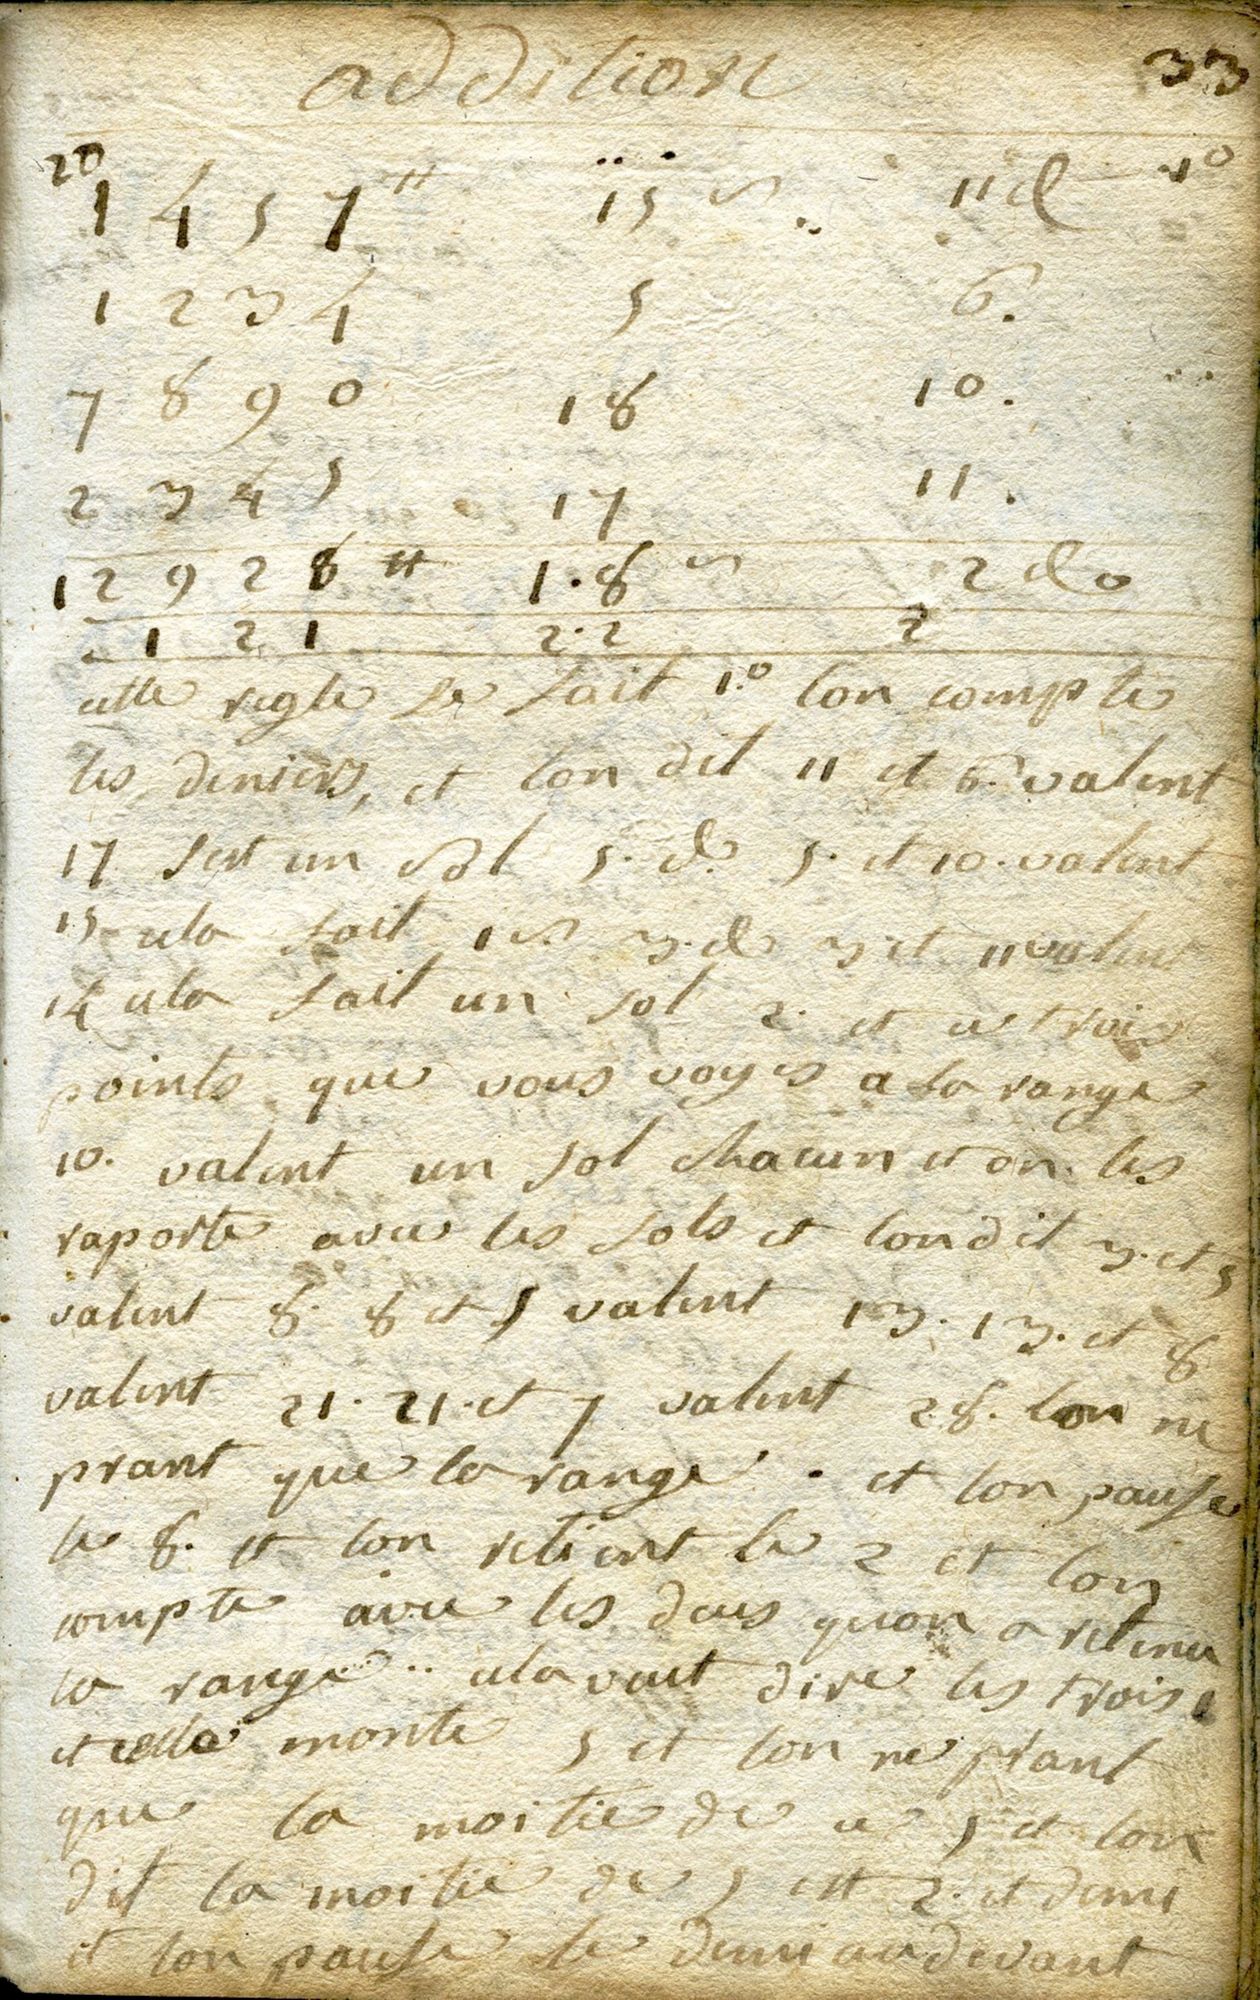 addition 33
20
1457 ₶ 15 s 11 d 10
1234 5 6.
7890 18 10.
2345 17 11.
12928 ₶ 1.8 s 2 do
121 2.2 2
cette regle se fait 1.o lon compte
les deniers, et lon dit 11 et 6. valent
17 sest un sol 5. d. 5. et 10. valent
15 cela fait 1 s. 3. d 3 et 11 valent
14 cela fait un sol 2. et ce trois
points que vous voyes a la range
10. valent un sol chacun et on les
raporte avec les sols et londit 3. et 5
valent 8. 8 et 5 valent 13. 13. et 8
valent 21. 21. et 7 valent 28. lon ne
prant que la range . et lon pause
le 8. et lon retient le 2 et lon
compte avec les deus quon a retenu
la range .. cela vaut dire les trois 1
et celle monte 5 et lon ne prant
que la moitie de ce 5 et lon
dit la moitie de 5 est 2. et demi
et lon pause le demi audevant